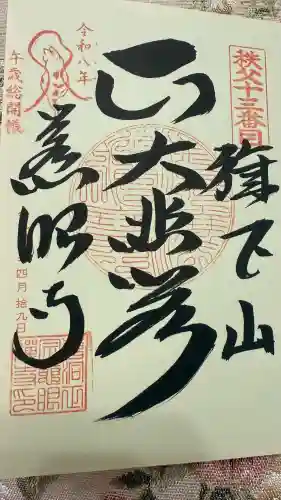 秩父十三番目
旗下山
大悲殿
令和八年
慈眼寺
午歳総開帳
四月拾九日